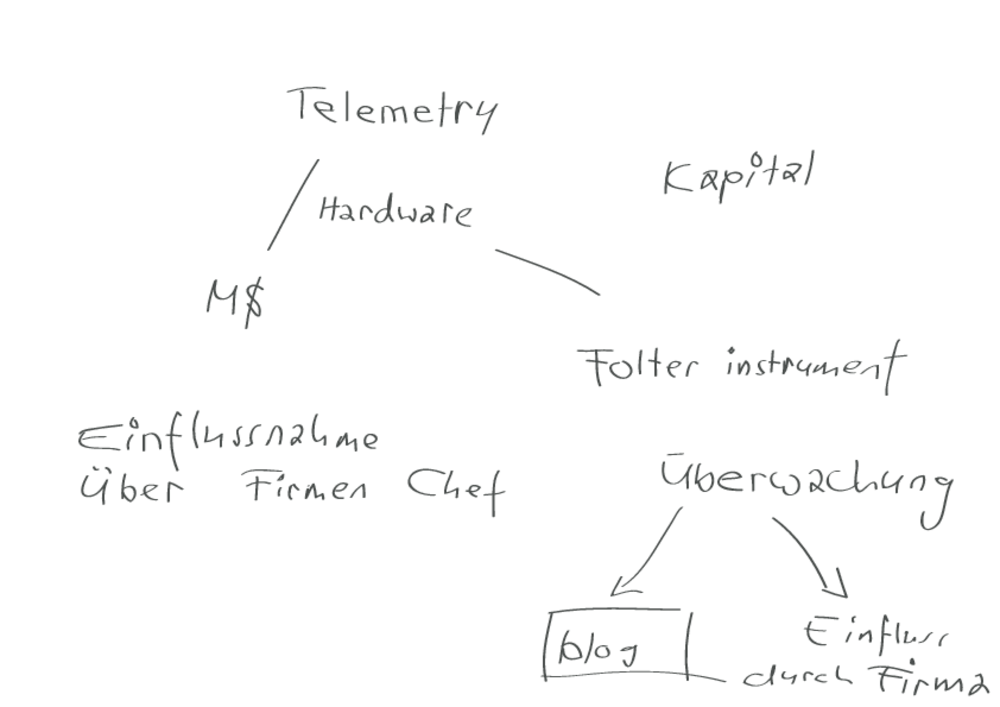 Telemetry
Kapital
Hardware
M$
Folter instrument
Einflussnahme
Über Firmen Chef
Überwachung
blog
Einfluss
durch Firma